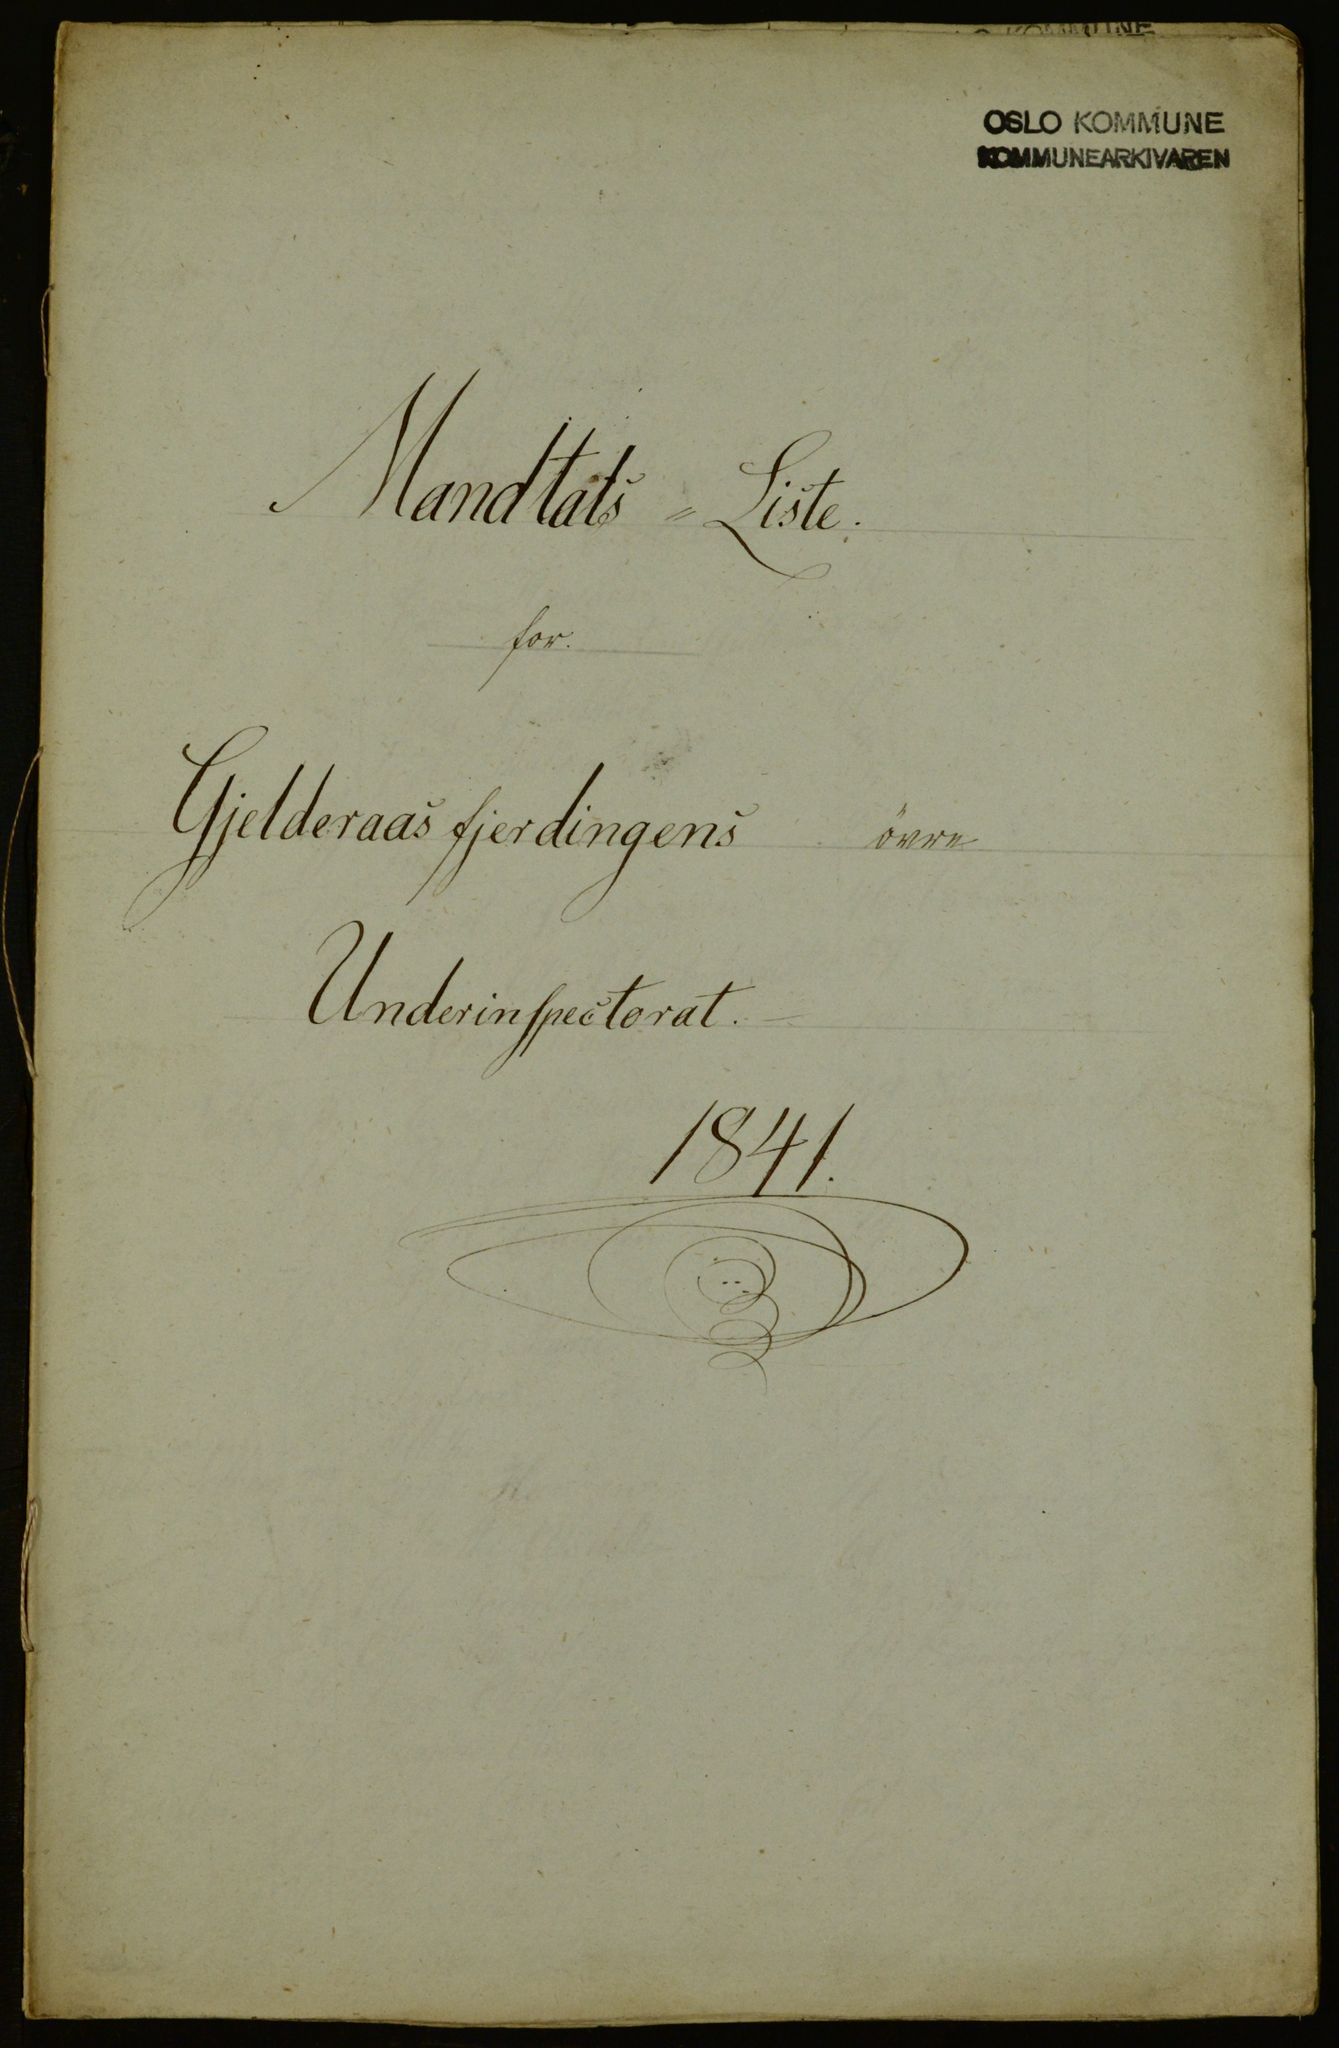 OSLO KOMMUNE
KOMMUNEARKIVAREN
Mandtals = Liste.
for.
Gjelderaasfjerdingens övre
Underinspectorat.
1841.